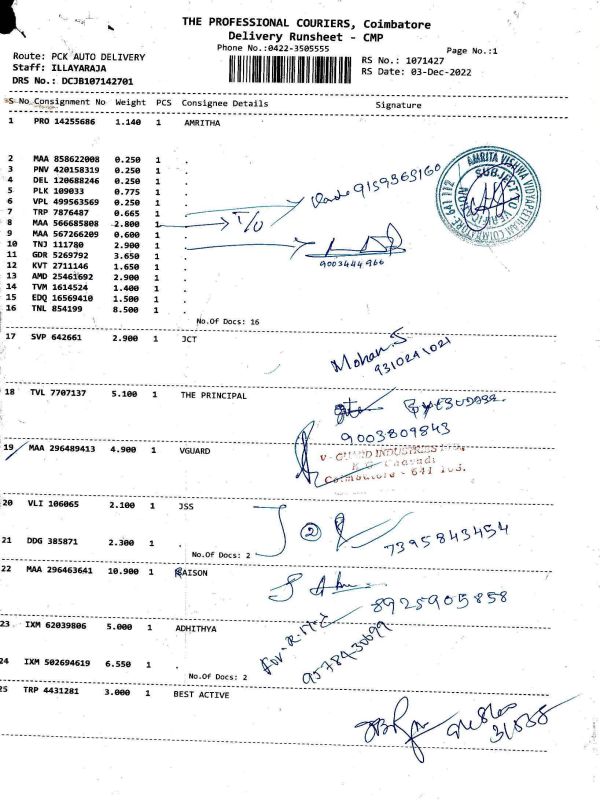 THE PROFESSIONAL COURIERS, Coimbatore
Delivery Runsheet - CMP
Phone No.:0422-3505555
Page No.:1
Route: PCK AUTO DELIVERY
Staff: ILLAYARAJA
DRS No.: DCJB107142701
RS No.: 1071427
RS Date: 03-Dec-2022
S No Consignment No Weight PCS Consignee Details Signature
1 PRO 14255686 1.140 1 AMRITHA
2 MAA 858622008 0.250 1 .
3 PNV 420158319 0.250 1 .
4 DEL 120688246 0.250 1 .
5 PLK 109033 0.775 1 .
6 VPL 499563569 0.250 1 .
7 TRP 7876487 0.665 1 .
8 MAA 566685808 2.800 1 .
9 MAA 567266209 0.600 1 .
10 TNJ 111780 2.900 1 .
11 GDR 5269792 3.650 1 .
12 KVT 2711146 1.650 1 .
13 AMD 25461692 2.900 1 .
14 TVM 1614524 1.400 1 .
15 EDQ 16569410 1.500 1 .
16 TNL 854199 8.500 1 .
9159365160
T/O
AMRITA VISHWA VIDYAPEETHAM COIMBATORE- 641 112
SUBJECT TO
9003444966
No.Of Docs: 16
17 SVP 642661 2.900 1 JCT
Mohan.J
9310241021
18 TVL 7707137 5.100 1 THE PRINCIPAL
9003809843
19 MAA 296489413 4.900 1 VGUARD
V - GUARD INDUSTRIES LTD,
K.G. Chavadi
Coimbatore - 641 105.
20 VLI 106065 2.100 1 JSS
2
21 DDG 385871 2.300 1 .
7395843454
No.Of Docs: 2
22 MAA 296463641 10.900 1 RAISON
8925905858
23 IXM 62039806 5.000 1 ADHITHYA
9578430099
24 IXM 502694619 6.550 1 .
No.Of Docs: 2
25 TRP 4431281 3.000 1 BEST ACTIVE